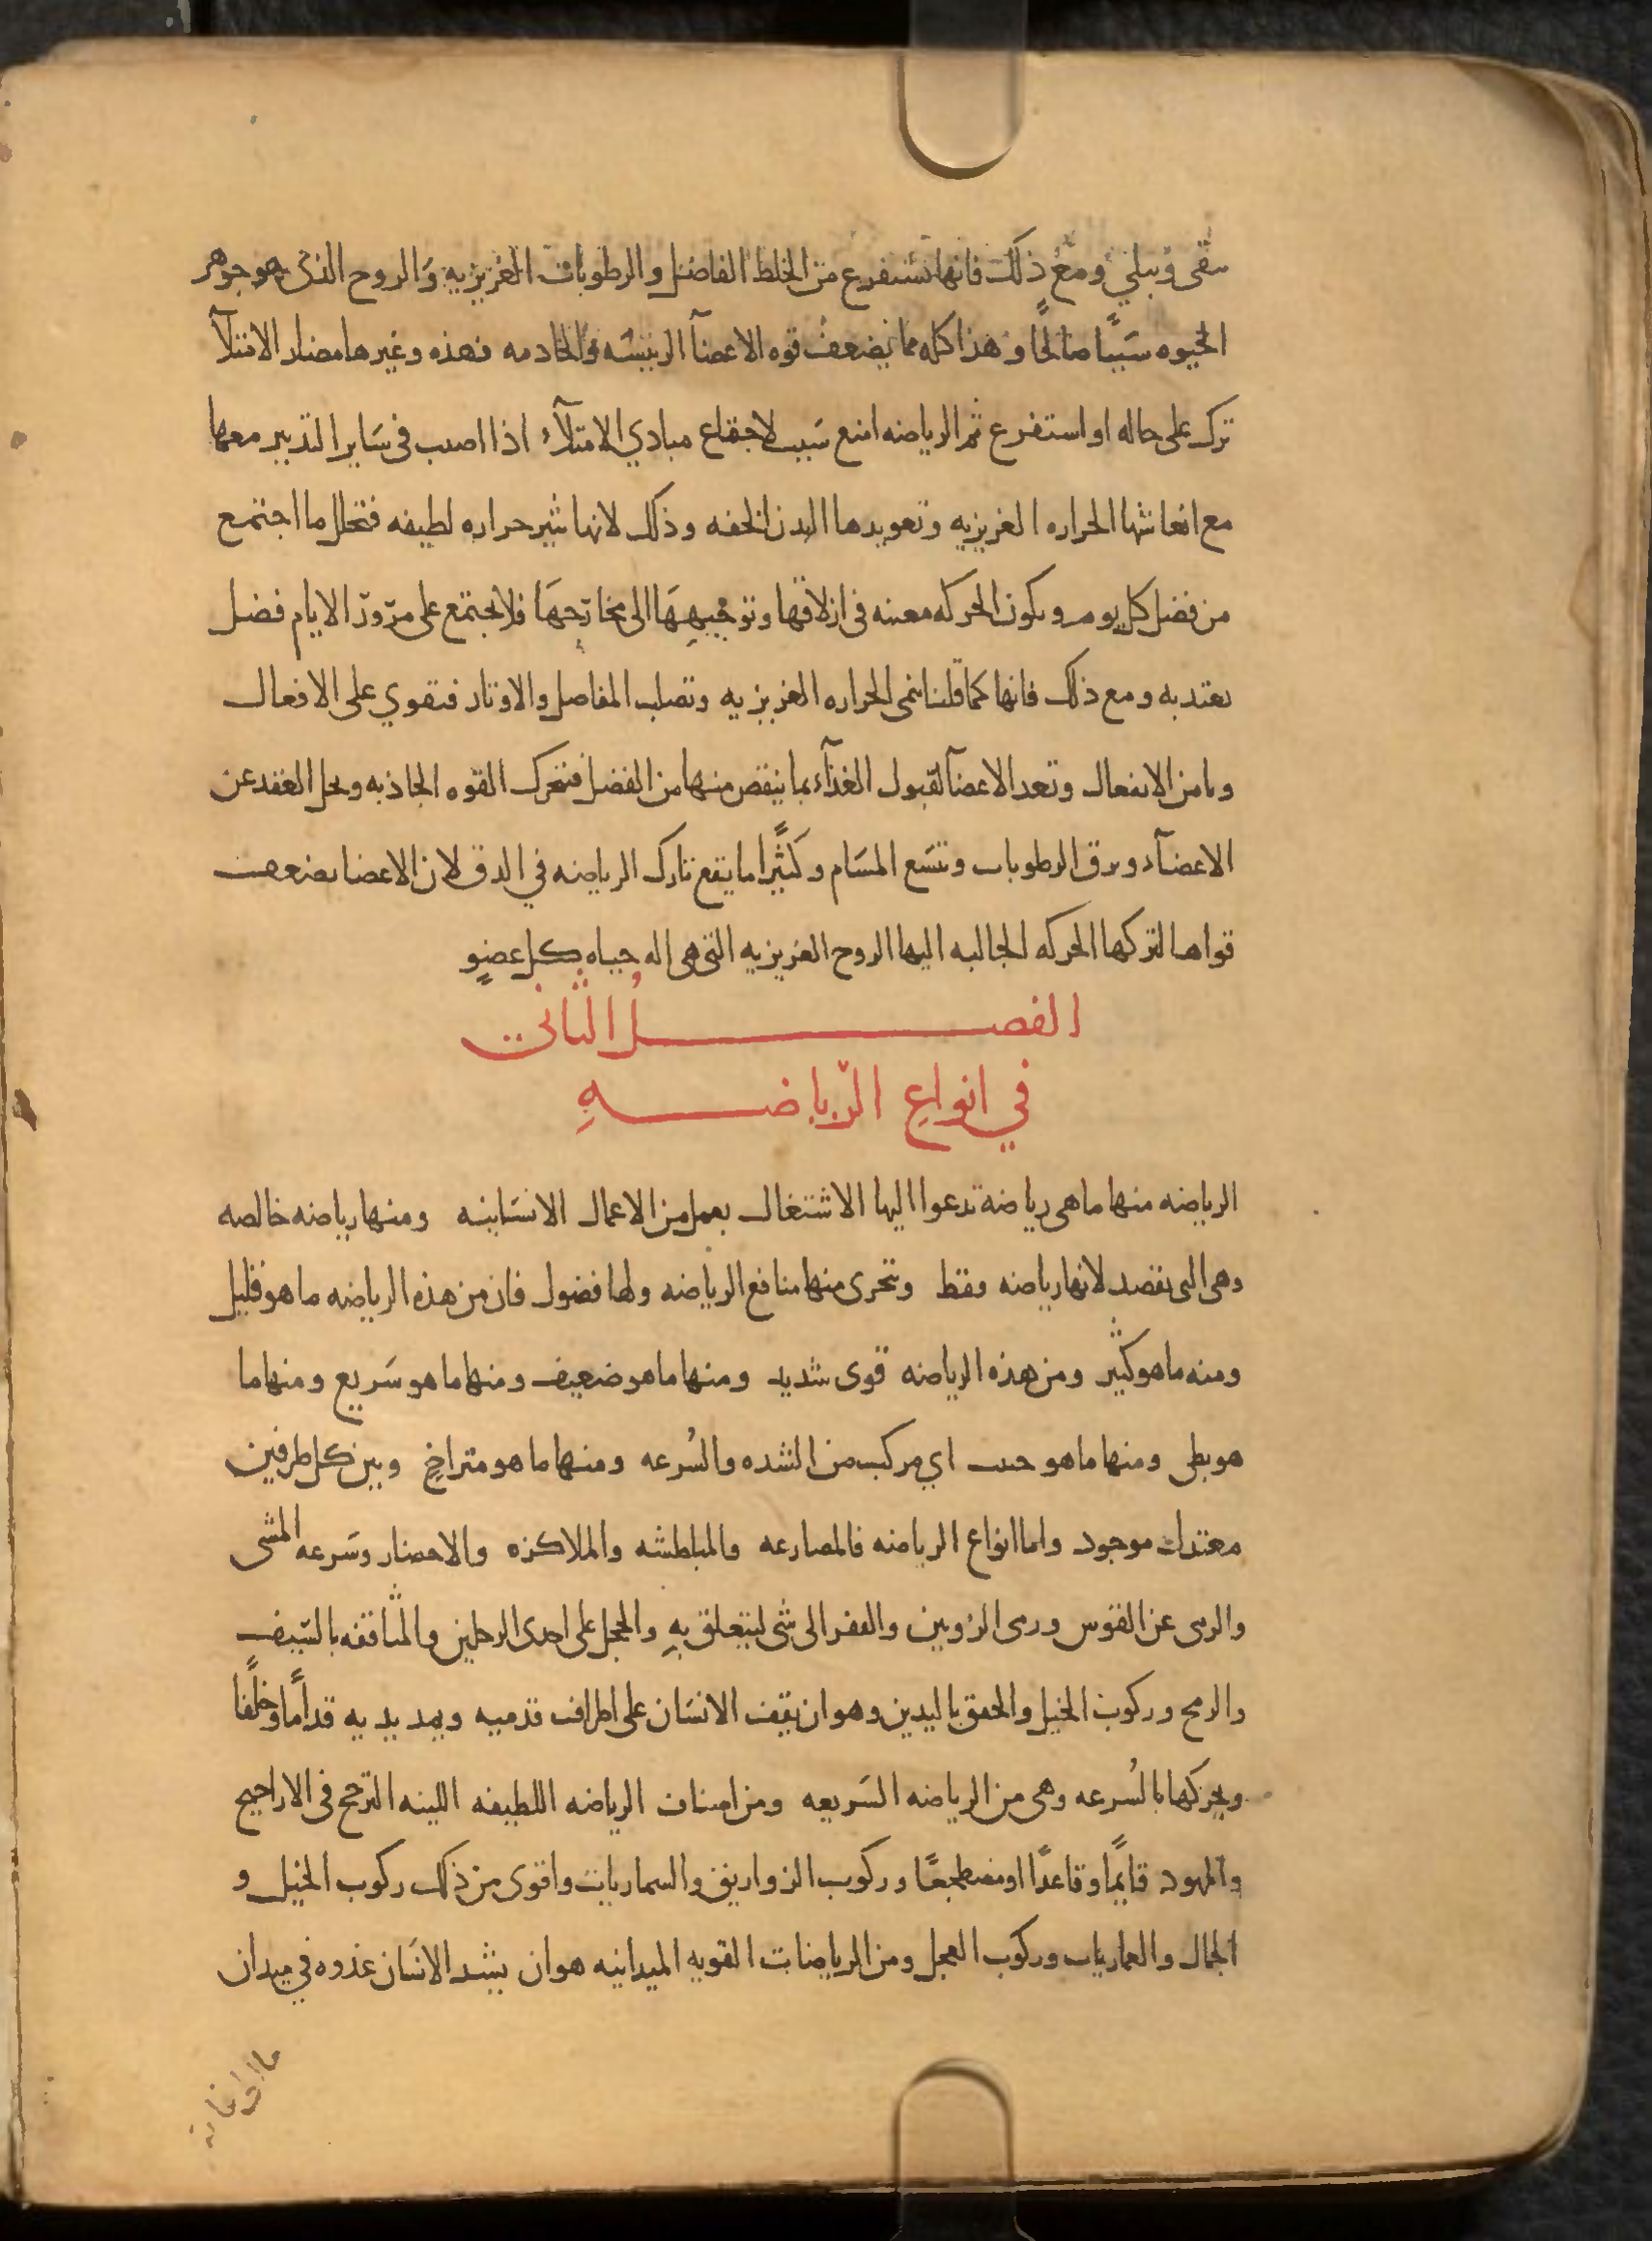 ىنقى ويبلى ومع ذلك فانها تستفرع من الخلط الفاضل والرطوبات الغريزيه والروح الذى هو جوهر
الحيوه شيا صالحا وهذا كله مما يضعف قوه الاعضآ الرييسه والخادمه فهذه وغيرها مضار الامتلآ
ترك على حاله او استفرع ثم الرياضه امنع سبب لاجتماع مبادي الامتلآء اذا اصيب في ساير التدبير معها
مع انعاشها الحراره الغريزيه وتعويدها البدن الخفه وذلك لانها تثير حراره لطيفه فتحلل ما اجتمع
من فضل كل يوم وىكون الحركه معينه في ازلاقها وتوجيهها الى مخارجها فلا يجتمع على مرور الايام فضل
يعتد به ومع ذلك فانها كما قلنا تنمى الحراره الغريزيه وتصلب المفاصل والاوتار فتقوي على الافعال
وىامن الانفعال وتعد الاعضآ لقبول الغذآء بما ينقص منها من الفضل فتحرك القوه الجاذبه ويحل العقد عن
الاعضآء ويرق الرطوبات وتتسع المسام وكثيرا ما يقع تارك الرياضه في الدق لان الاعضا يضعف
قواها لتركها الحركه الجالبه اليها الروح الغريزيه التي هى اله حياه كل عضو
الفصل الثاني
في انواع الرياضه
الرياضه منها ما هى رياضه تدعوا اليها الاشتغال بعمل من الاعمال الانسانيه ومنها رياضه خالصه
وهى التى ىقصد لانها رياضه وفقط وتتحرى منها منافع الرياضه ولها فضول فان من هذه الرياضه ما هو قليل
ومنه ما هو كثير ومن هذه الرياضه قوى شديد ومنها ما هو ضعيف ومنها ما هو سريع ومنها ما
هو بطى ومنها ما هو حىث اي مركب من الشده والسرعه ومنها ما هو متراخ وبين كل طرفين
معتدل موجود واما انواع الرياضه فالمصارعه والمباطشه والملاكزه والاحضار وسرعه المشى
والرمى عن القوس ورمى الزوبين والقفز الى شى ليتعلق به والحجل على احدى الرجلين والمثاقفه بالسيف
والرمح وركوب الخيل والخفق باليدين وهو ان يقف الانسان على اطراف قدميه ويمد يديه قداما وخلفا
ويحركها بالسرعه وهى من الرياضه السريعه ومن اصناف الرياضه اللطيفه اللينه الترجح في الاراجيح
والمهود قايما وقاعدا او مضطجعا وركوب الزواريق والسماريات واقوى من ذلك ركوب الخيل و
الجمال والعماريات وركوب العجل ومن الرياضات القويه الميدانيه هو ان يشد الانسان عدوه في ميدان